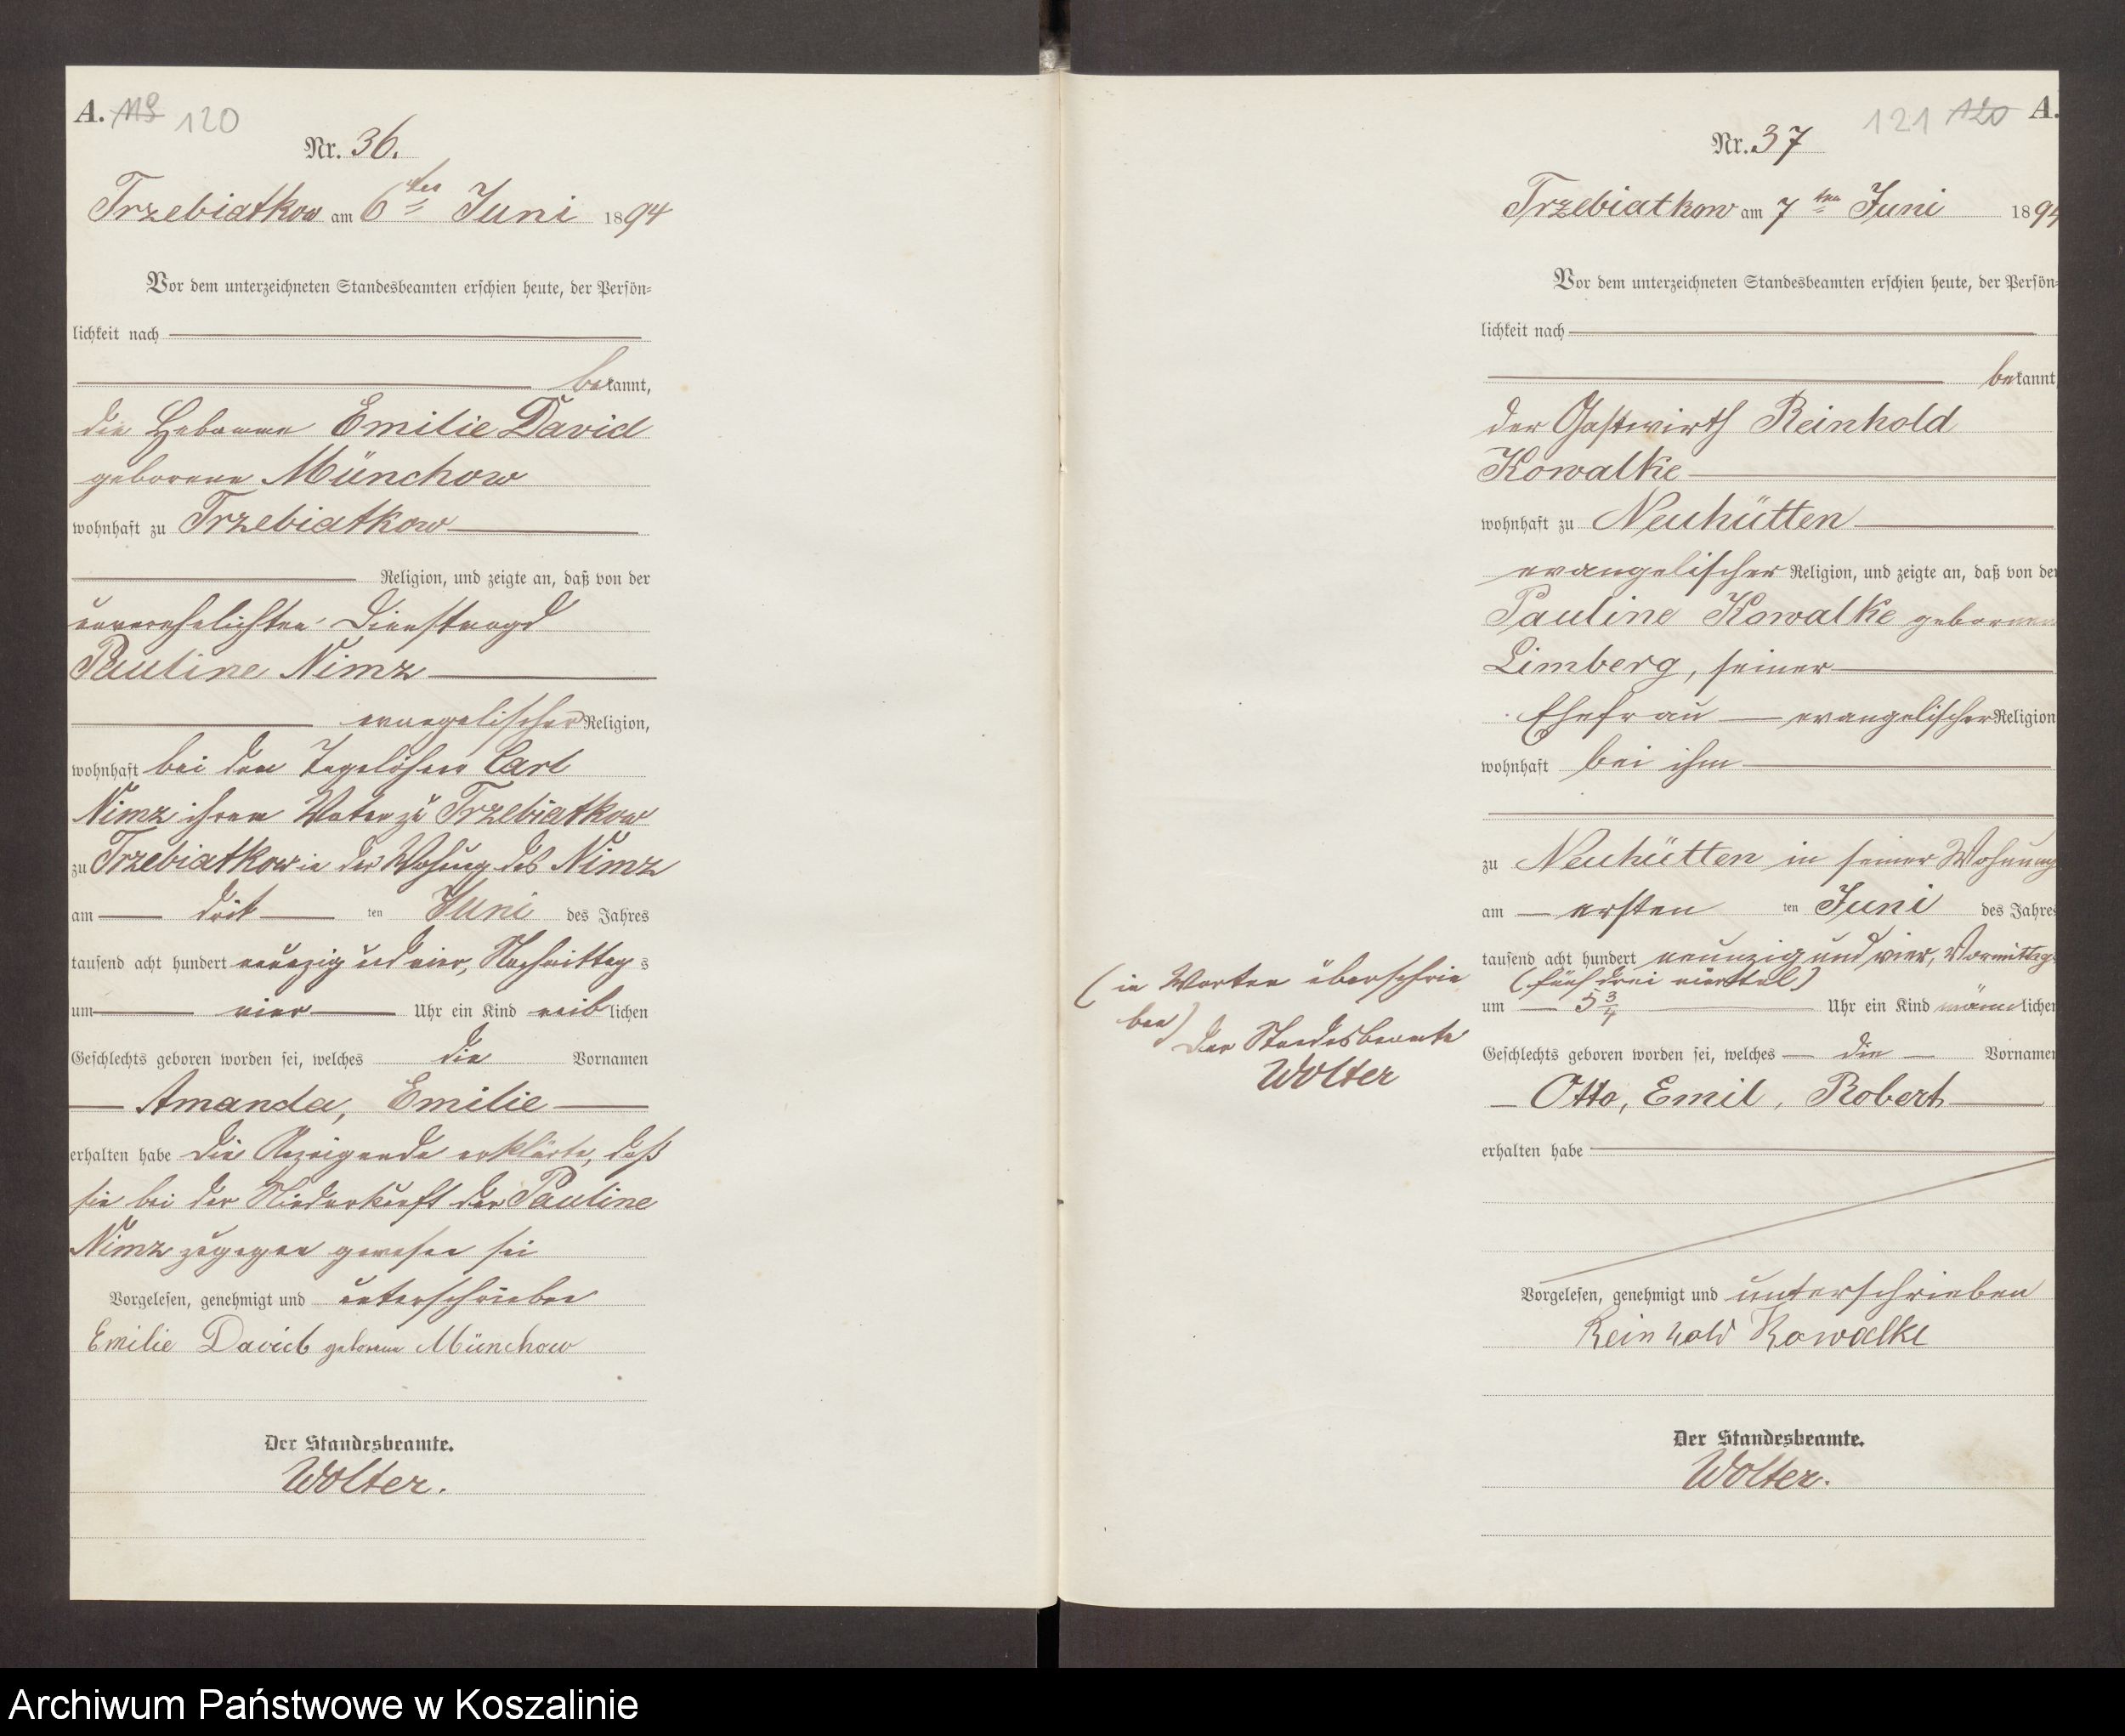 A. 119 120
Nr. 36.
Trzebiatkow am 6ten Juni 1894
Vor dem unterzeichneten Standesbeamten erschien heute, der Persön=
lichkeit nach
bekannt,
die Hebamme Emilie David
geborene Münchow
wohnhaft zu Trzebiatkow
Religion, und zeigte an, daß von der
unverehelichten Dienstmagd
Pauline Nimz
evangelischer Religion,
wohnhaft bei dem Tagelöhner Carl
Nimz ihrem Vater zu Trzebiatkow
zu Trzebiatkow in der Wohnung des Nimz
am dritten Juni des Jahres
tausend acht hundert neunzig und vier, Nachmittags
um vier Uhr ein Kind weiblichen
Geschlechts geboren worden sei, welches die Vornamen
Amanda, Emilie
erhalten habe Die Anzeigende erklärte, daß
sie bei der Niederkunft der Pauline
Nimz zugegen gewesen sei
Vorgelesen, genehmigt und unterschrieben
Emilie David geborene Münchow
Der Standesbeamte.
Wolter.
121 120 A.
Nr. 37
Trzebiatkow am 7ten Juni 1894
Vor dem unterzeichneten Standesbeamten erschien heute, der Persön=
lichkeit nach
bekannt
der Gastwirth Reinhold
Kowalke
wohnhaft zu Neuhütten
evangelischer Religion, und zeigte an, daß von der
Pauline Kowalke geborenen
Limberg, seiner
Ehefrau evangelischer Religion
wohnhaft bei ihm
zu Neuhütten in seiner Wohnung
am ersten ten Juni des Jahres
tausend acht hundert neunzig und vier, Vormittags
(fünf drei viertel)
um 5 3/4 Uhr ein Kind männlichen
Geschlechts geboren worden sei, welches die Vornamen
Otto, Emil, Robert
erhalten habe
(in Worten überschrie
ben)
Der Standesbeamte
Wolter
Vorgelesen, genehmigt und unterschrieben
Reinhold Kowalke
Der Standesbeamte.
Wolter.
Archiwum Państwowe w Koszalinie